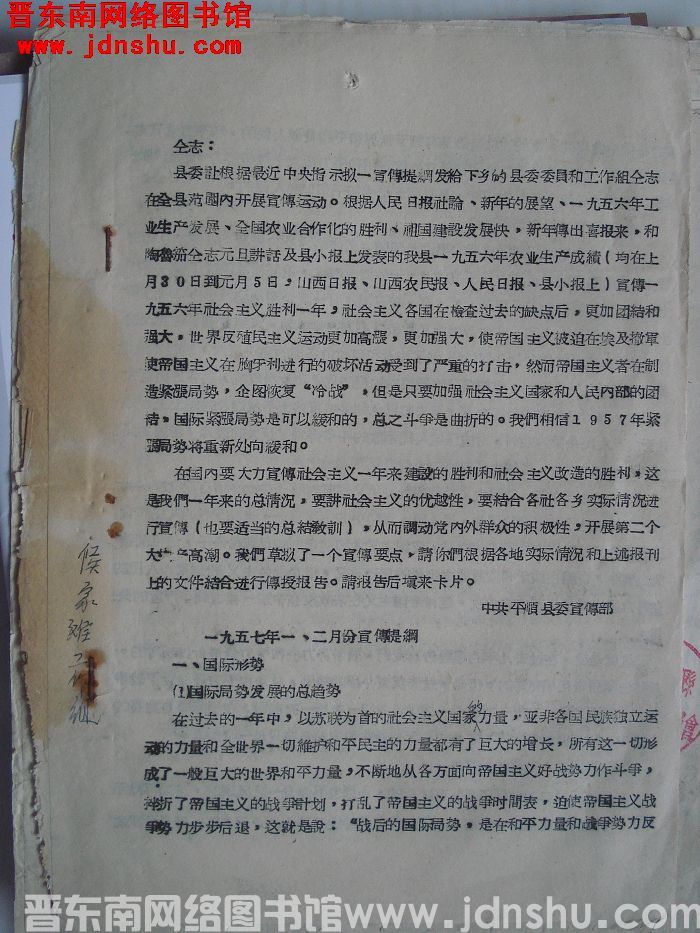 晋东南网络图书馆
www.jdnshu.com
仝志：
县委让根据最近中央指示拟一宣傳提綱发給下乡的县委委員和工作組仝志
在全县范圍內开展宣傳运动。根据人民日报社論、新年的展望、一九五六年工
业生产发展、全国农业合作化的胜利、祖国建設发展快，新年傳出喜报来，和
陶魯笳仝志元旦講話及县小报上发表的我县一九五六年农业生产成績（均在上
月30日到元月5日，山西日报、山西农民报、人民日报、县小报上）宣傳一
九五六年社会主义胜利一年，社会主义各国在檢查过去的缺点后，更加团結和
强大。世界反殖民主义运动更加高漲，更加强大，使帝国主义被迫在埃及撤軍
使帝国主义在胸牙利进行的破坏活动受到了严重的打击，然而帝国主义者在制
造紧張局势，企图恢复“冷战”，但是只要加强社会主义国家和人民內部的团
結，国际紧張局势是可以緩和的，总之斗爭是曲折的。我們相信1957年紧
張局势将重新处向緩和。
在国内要大力宣傳社会主义一年来建設的胜利和社会主义改造的胜利。这
是我們一年来的总情况，要講社会主义的优越性，要結合各社各乡实际情况进
行宣傳（也要适当的总結敎訓），从而調动党內外群众的积极性，开展第二个
大生产高潮。我們草拟了一个宣傳要点，請你們根据各地实际情况和上述报刊
上的文件結合进行傳授报告。請报告后填来卡片。
中共平順县委宣傳部
一九五七年一、二月份宣傳提綱
一、国际形势
⑴国际局势发展的总趋势
在过去的一年中，以苏联为首的社会主义国家的力量，亚非各国民族独立运
动的力量和全世界一切維护和平民主的力量都有了巨大的增长，所有这一切形
成了一般巨大的世界和平力量，不断地从各方面向帝国主义好战势力作斗爭，
挫折了帝国主义的战爭計划，打乱了帝国主义的战爭时間表，迫使帝国主义战
爭势力步步后退，这就是說：“战后的国际局势，是在和平力量和战爭势力反
侯家
晋东南网络图书馆 www.jdnshu.com